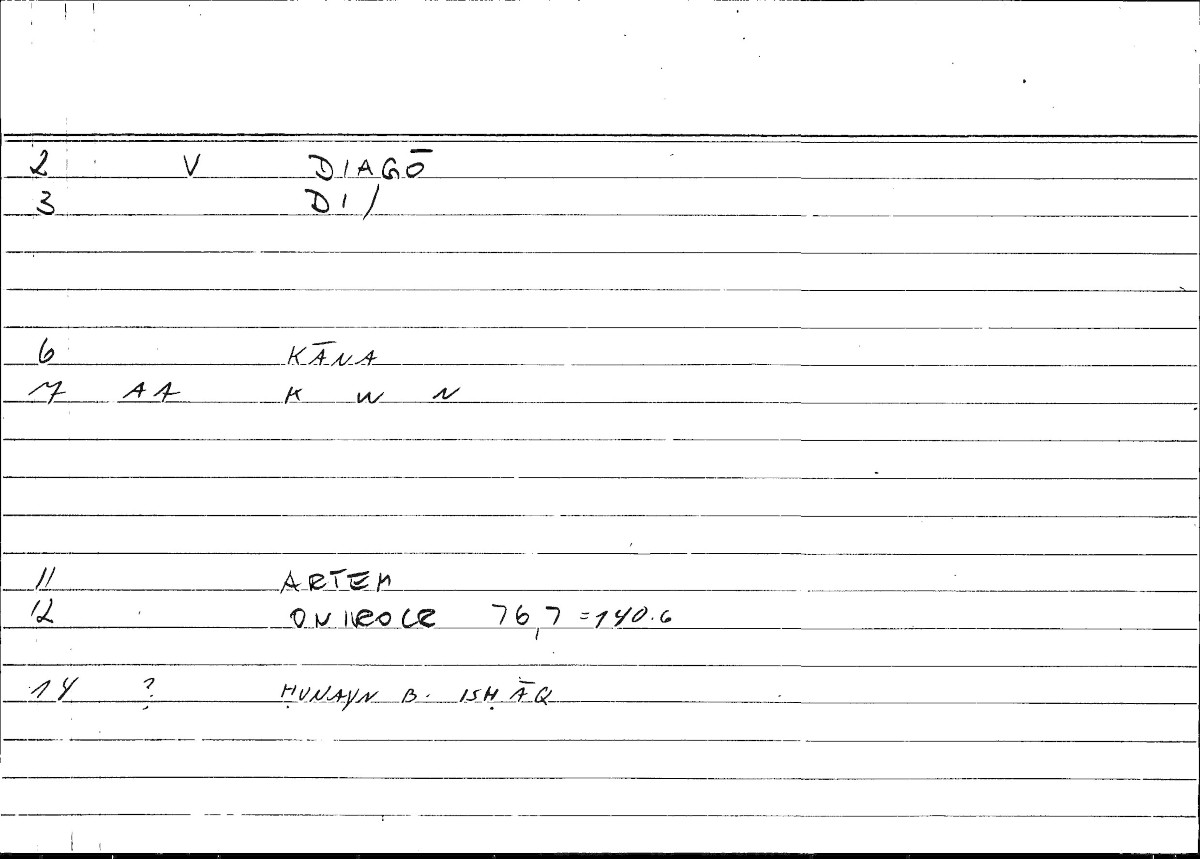 2 V DIAGŌ
3 DI/
6 KĀNA
7 AA K W N
11 ARTEM
12 ONIROCR 76,7 = 140.6
14 ? ḤUNAYN B. ISḤĀQ